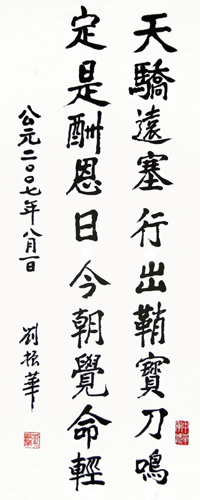 天驕遠塞行出鞘寶刀鳴
定是酬恩日今朝覺命輕
公元二〇〇七年八月一日
劉振華